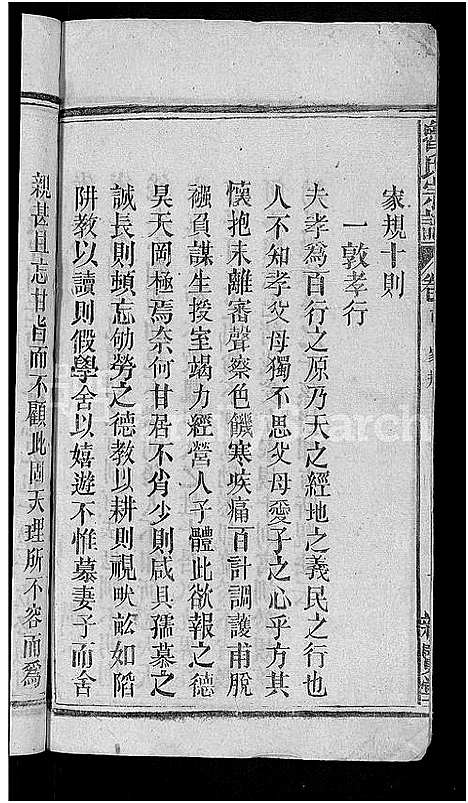 家規十則
一敦孝行
夫孝爲百行之原乃天之經地之義民之行也
人不知孝父母獨不思父母愛子之心乎方其
懷抱未離審聲察色饑寒疾痛百計調護甫脫
襁負謀生授室竭力經營人子體此欲報之德
昊天罔極焉奈何甘居不肖少則咸具孺慕之
誠長則頓忘劬勞之德教以耕則視畎畝如陷
阱教以讀則假學舍以嬉遊不惟慕妻子而舍
親甚且忘甘旨而不顧此固天理所不容而爲
氏宗譜
卷首
家規